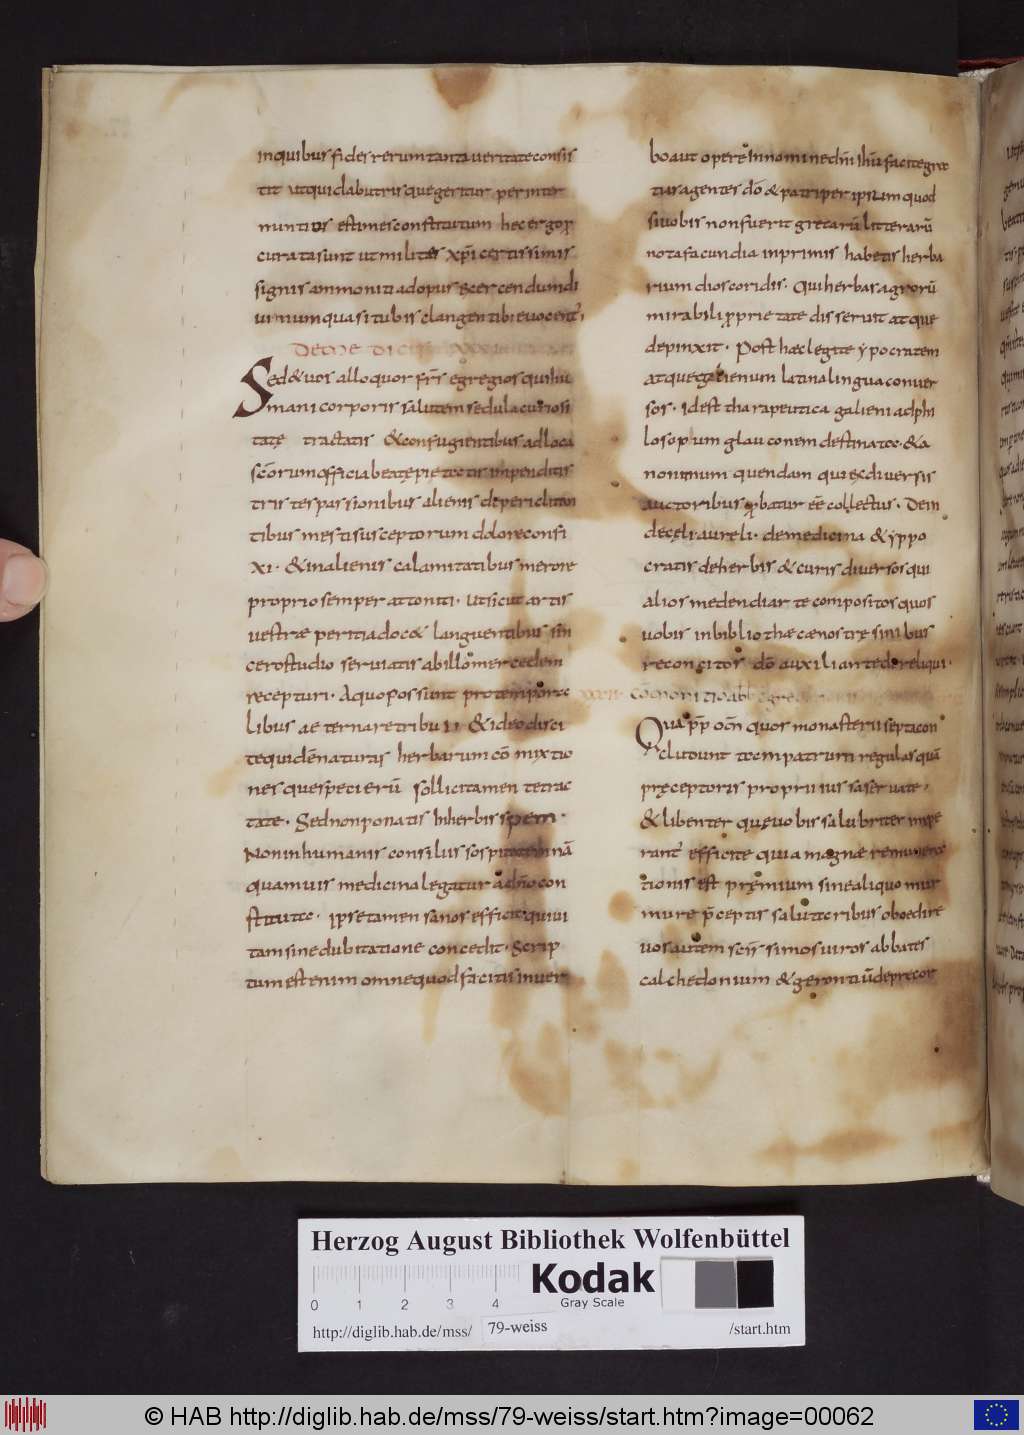 inquibus fides rerum tanta ueritate consis
tit ut quiclabutris que geritur per inter
nuntios estimes constitutum hec ergo ꝓ
curata sunt ut milites xp̄i certissimis
signis ammoniti ad opus exercendum di
uinum quasi tubis clangentib; euocent᷑
Sed & uos alloquor fr̄s egregios qui hu
mani corporis salutem sedula curiosi
tatę tractatis & confugientibus ad loca
sc̄orum officia beatę pietatis impenditis
tristes passionibus alienis de periclitan
tibus męsti susceptorum dolore confi
xi · & in alienis calamitatibus merore
proprio semper attoniti · Ut sicut artis
uestrae peritia doc& languentibus sin
cero studio seruiatis ab illo mercedem
recepturi · A quo possunt pro tempora
libus aeterna retribui · & ideo disci
te quidē naturas herbarum cōmixtio
nes que specierū sollicita mente trac
tate · Sed non ponatis In herbis spem ·
Non in humanis consiliis sospitatem nā
quamuis medicina legatur a dn̄o con
stituta · Ipse tamen sanos efficit qui ui
tam sine dubitatione concedit · Scrip
tum est enim omne quod facitis in uer
bo aut opere In nomine dn̄i ih̄u facite gra
tias agentes dō & patri per ipsum quod
si uobis non fuerit grecarū litterarū
nota facundia inprimis habetis herba
rium dioscoridis · Qui herbas agrorū
mirabili ꝓprietate disseruit atque
depinxit · Post haec legite ypocratem
atque galienum latina lingua conuer
sos · Id est tharapeutica galieni ad phi
losopum glauconem destinata · & a
nonimum quendam qui ex diuersis
auctoribus ꝓbatur eē collectus · Dein
de cęli aureli · de medicina & yppo
cratis de herbis & curis diuersos qui
alios medendi arte compositos quos
uobis in bibliothaecae nostrę sinibus
reconditos dō auxiliante dereliqui ·
Qua ꝓp̄ oc̄n quos monasterii septa con
cludunt tam patrum regulas quā
pręceptoris proprii iussa seruate ·
& libenter quę uobis salubriter impe
rant᷑ efficite quia magnae remunera
tionis est pręmium sine aliquo mur
mure p̄ceptis salutaribus oboedire
uos autem sc̄is̄simos uiros abbates
calchedonium & gerontiū deprecor
Herzog August Bibliothek Wolfenbüttel
0 1 2 3 4
Kodak
Gray Scale
http://diglib.hab.de/mss/ 79-weiss /start.htm
© HAB http://diglib.hab.de/mss/79-weiss/start.htm?image=00062